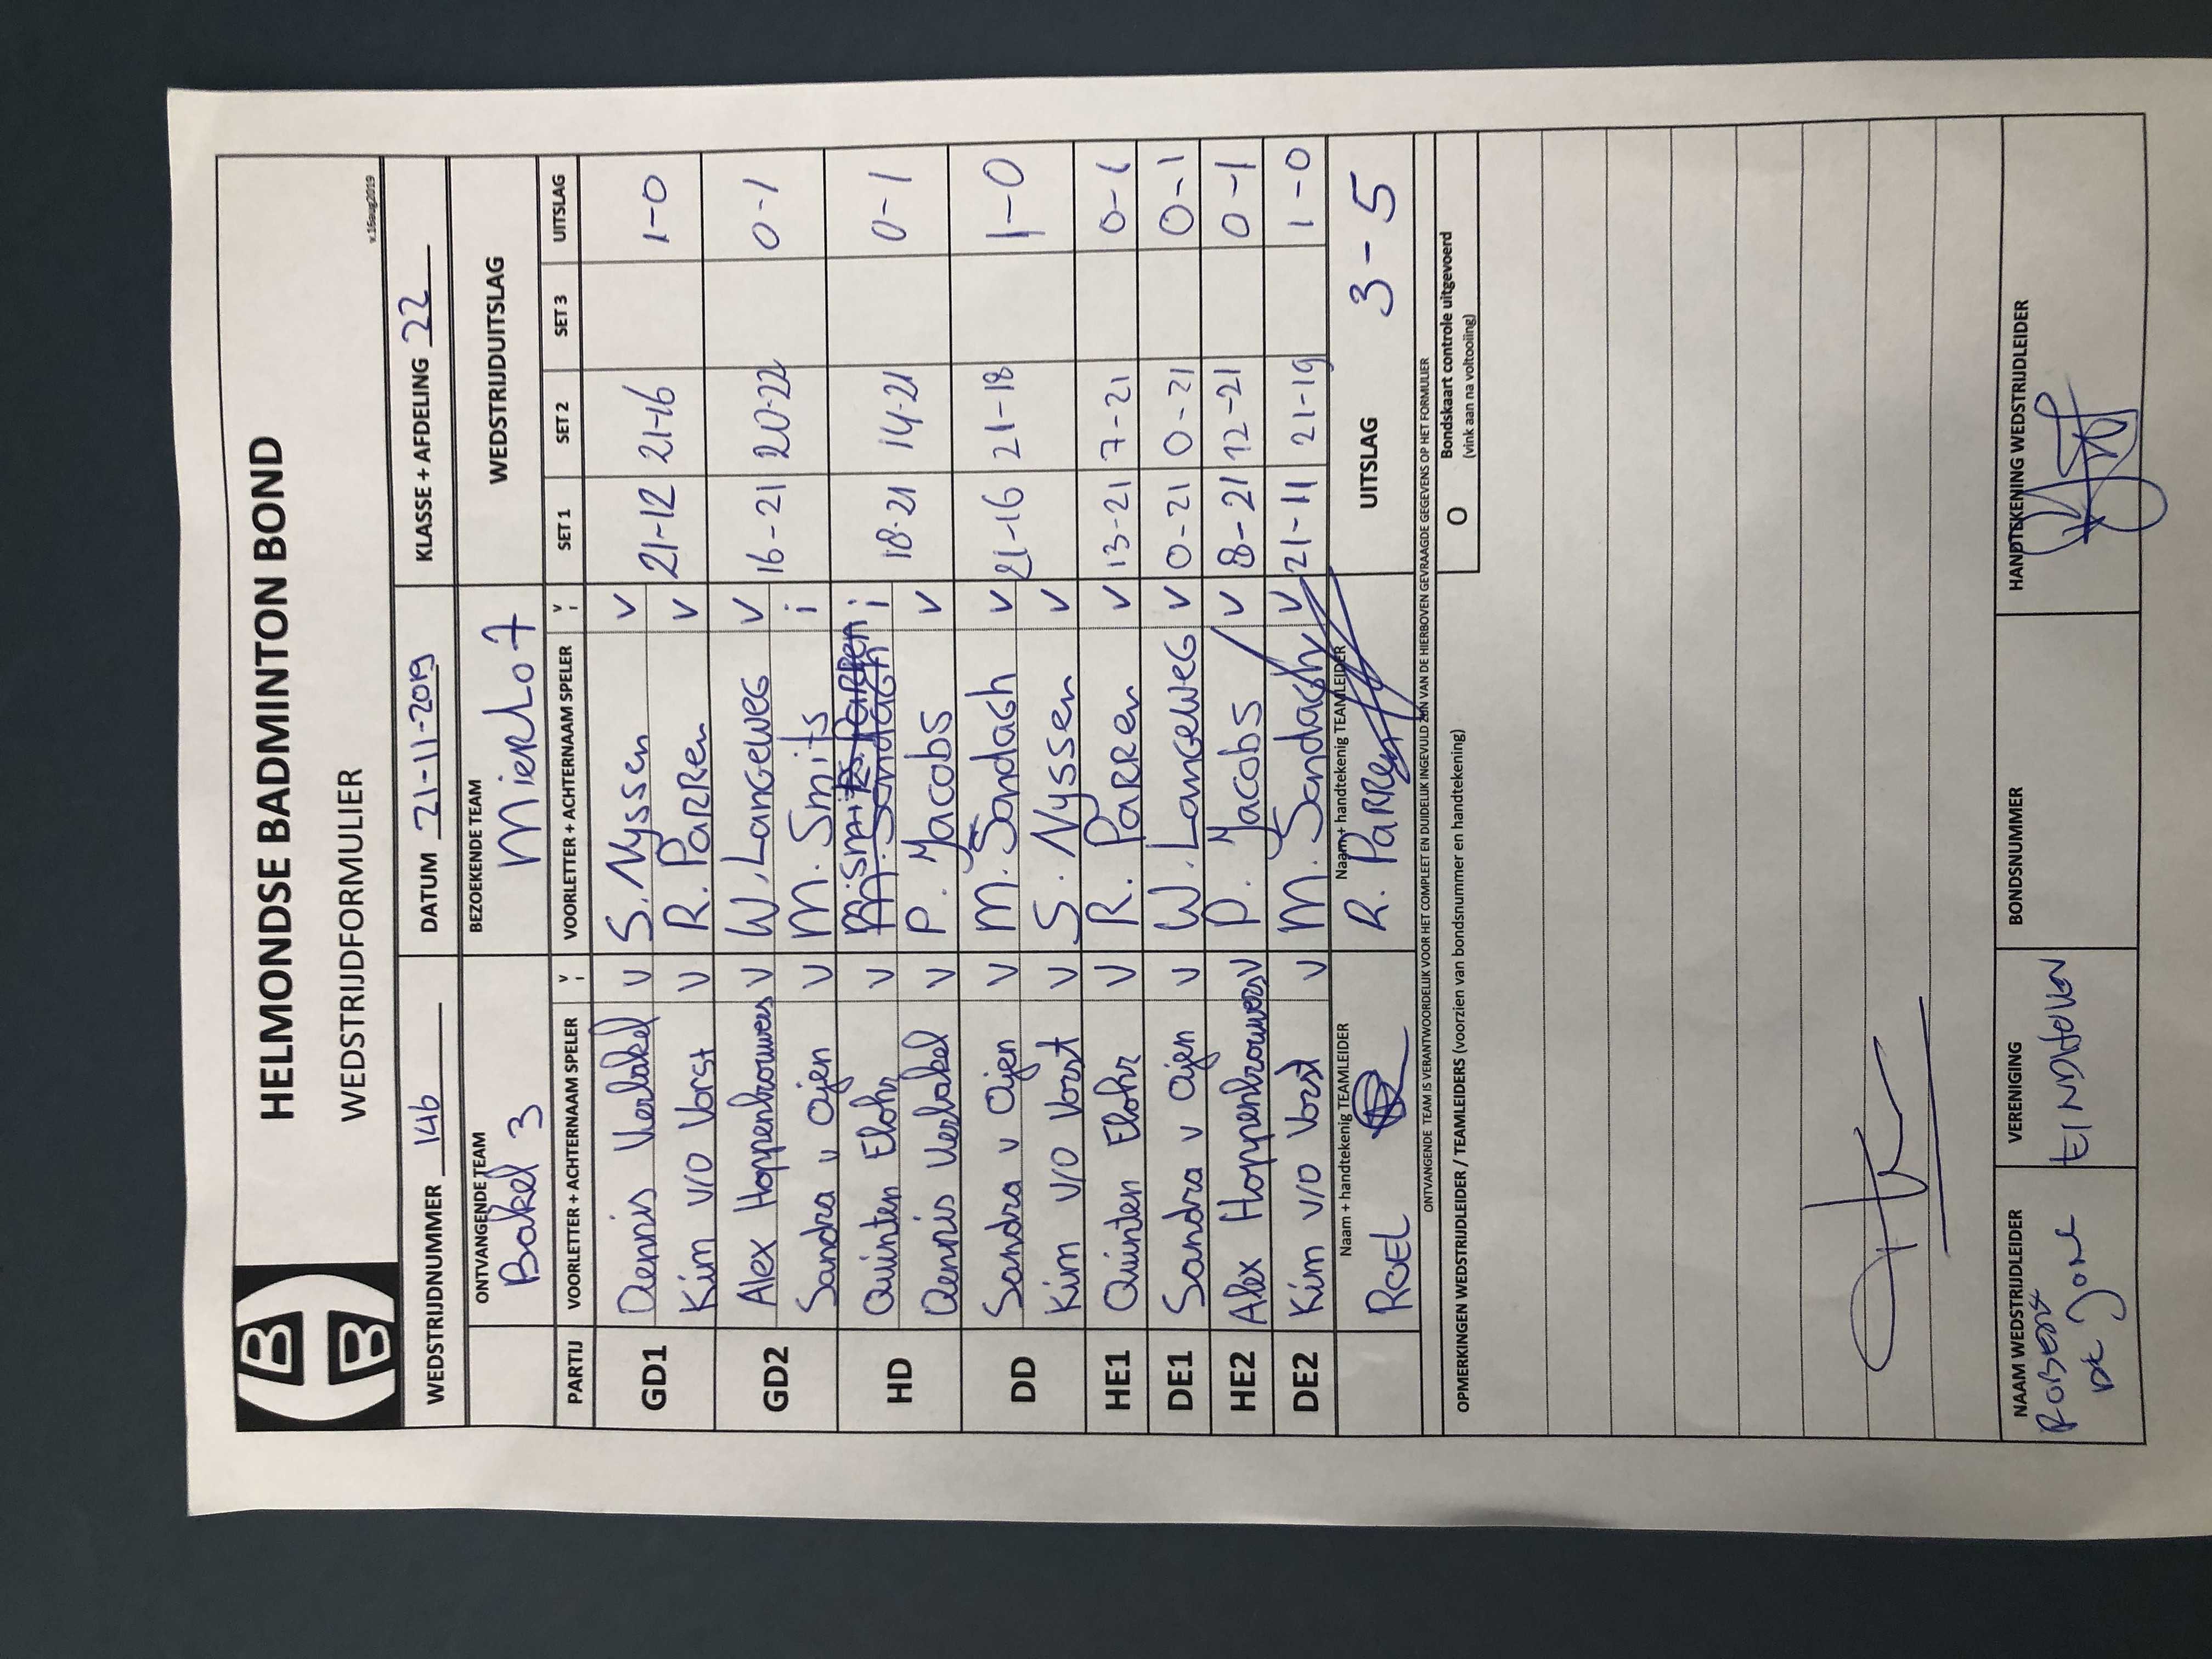 HELMONDSE BADMINTON BOND
WEDSTRIJDFORMULIER
v.16aug2019
WEDSTRIJDNUMMER 146 DATUM 21-11-2019 KLASSE + AFDELING 22
ONTVANGENDE TEAM BEZOEKENDE TEAM WEDSTRIJDUITSLAG
Bakel 3 MierLo 7
PARTIJ VOORLETTER + ACHTERNAAM SPELER V i VOORLETTER + ACHTERNAAM SPELER V i SET 1 SET 2 SET 3 UITSLAG
GD1 Dennis Verbakel V S. Nyssen V 21-12 21-16 1-0
Kim v/o Vorst V R. Parren V
GD2 Alex Hoppenbrouwers V W. Langeweg V 16-21 20-22 0-1
Sandra v Oijen V M. Smits i
HD Quinten Elohr V i 18-21 14-21 0-1
Dennis Verbakel V P. Jacobs V
DD Sandra v Oijen V M. Sandagh V 21-16 21-18 1-0
Kim v/o Vorst V S. Nyssen V
HE1 Quinten Elohr V R. Parren V 13-21 7-21 0-1
DE1 Sandra v Oijen V W. Langeweg V 0-21 0-21 0-1
HE2 Alex Hoppenbrouwers V P. Jacobs V 8-21 12-21 0-1
DE2 Kim v/o Vorst V M. Sandagh V 21-11 21-19 1-0
Naam + handtekenig TEAMLEIDER Naam + handtekenig TEAMLEIDER UITSLAG 3-5
ROEL R. Parren
ONTVANGENDE TEAM IS VERANTWOORDELIJK VOOR HET COMPLEET EN DUIDELIJK INGEVULD ZIJN VAN DE HIERBOVEN GEVRAAGDE GEGEVENS OP HET FORMULIER
OPMERKINGEN WEDSTRIJDLEIDER / TEAMLEIDERS (voorzien van bondsnummer en handtekening) O Bondskaart controle uitgevoerd
(vink aan na voltooiing)
NAAM WEDSTRIJDLEIDER VERENIGING BONDSNUMMER HANDTEKENING WEDSTRIJDLEIDER
ROBERT EINDHOVEN
DE JONG